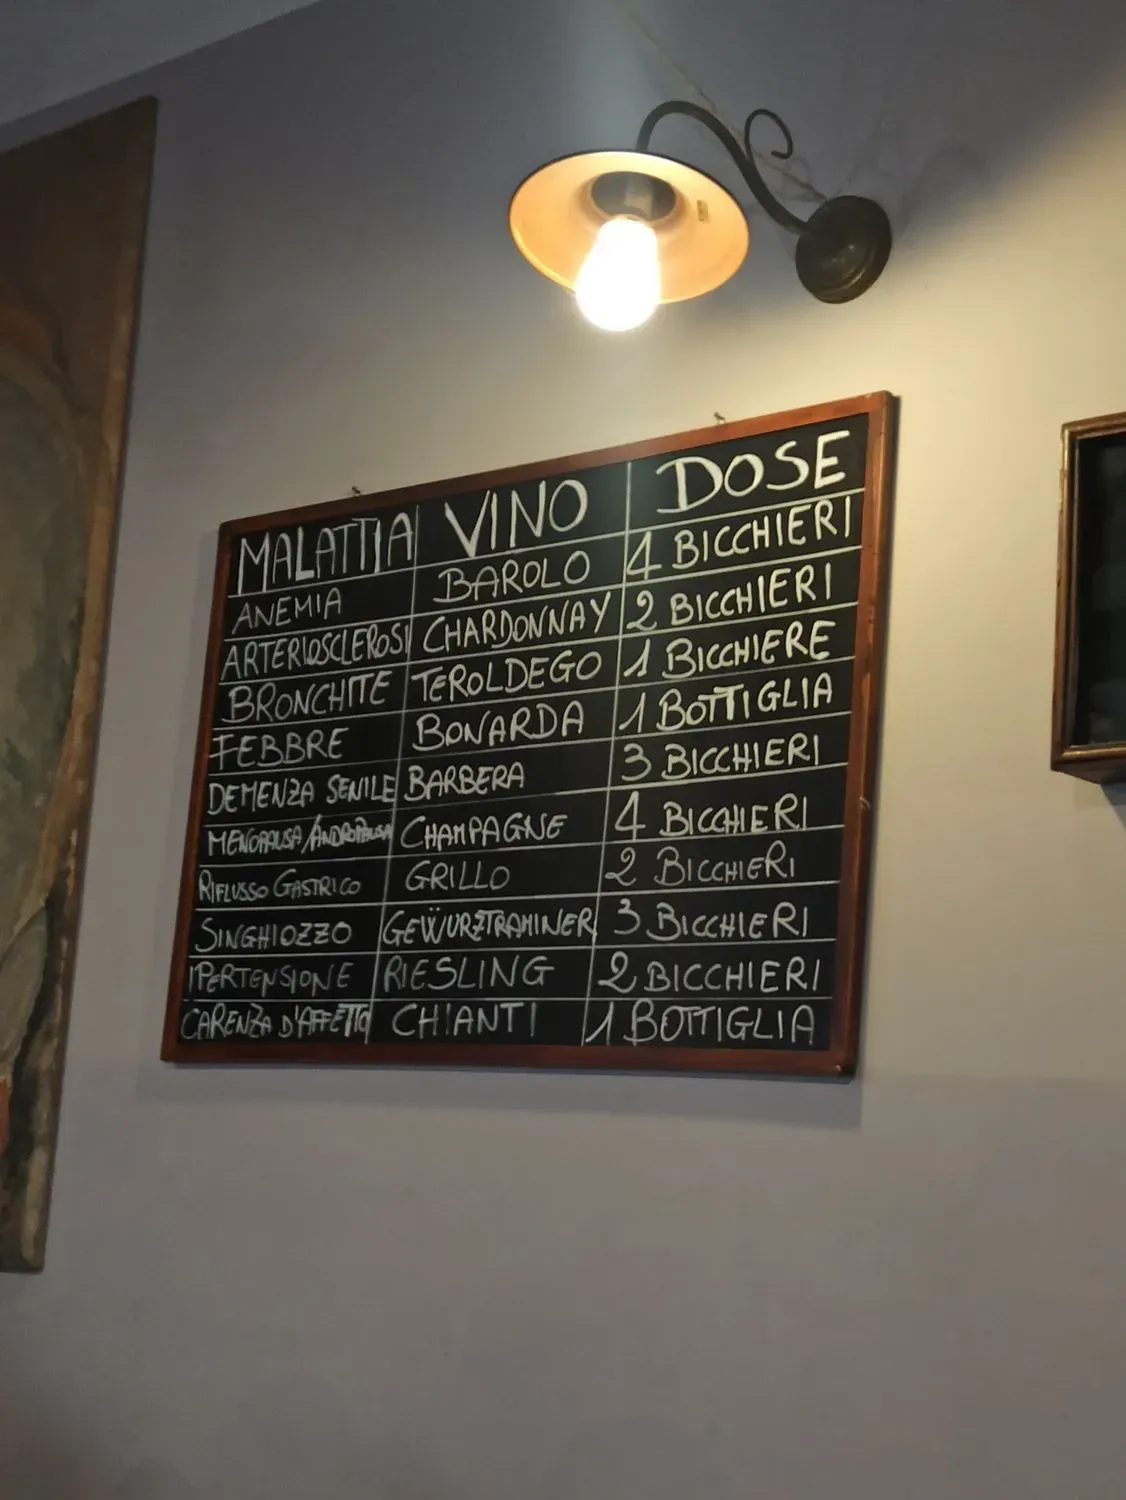 MALATTIA VINO DOSE
ANEMIA BAROLO 4 BICCHIERI
ARTERIOSCLEROSI CHARDONNAY 2 BICCHIERI
BRONCHITE TEROLDEGO 1 BICCHIERE
FEBBRE BONARDA 1 BOTTIGLIA
DEMENZA SENILE BARBERA 3 BICCHIERI
MENOPAUSA/ANDROPAUSA CHAMPAGNE 4 BICCHIERI
RIFLUSSO GASTRICO GRILLO 2 BICCHIERI
SINGHIOZZO GEWÜRZTRAMINER 3 BICCHIERI
IPERTENSIONE RIESLING 2 BICCHIERI
CARENZA D'AFFETTO CHIANTI 1 BOTTIGLIA